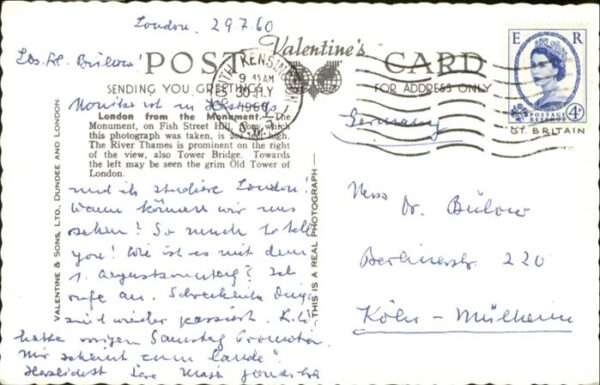 London. 29760
Lbs. H. Bülow!
POST CARD
Valentine's
SENDING YOU GREETINGS
FOR ADDRESS ONLY
SOUTH KENSINGTON
9 45 AM
30 JLY
1960
S.W.7
E R
POSTAGE REVENUE
4D
OF BRITAIN
London from the Monument.—The
Monument, on Fish Street Hill, from which
this photograph was taken, is 202 feet high.
The River Thames is prominent on the right
of the view, also Tower Bridge. Towards
the left may be seen the grim Old Tower of
London.
VALENTINE & SONS, LTD., DUNDEE AND LONDON
THIS IS A REAL PHOTOGRAPH
Monika ist in
und ich studiere London!
Wann können wir uns
sehen! So much to tell
you! Wie ist es mit dem
1. Augustsonntag? Ich
rufe an. Schreckliche Dinge
sind wieder passiert.
hatte vorigen Samstag Promotion
Mir scheint cum laude!
Herzlichst
Germany
Herr Dr. Bülow
Berlinerstr 220
Köln - Mülheim